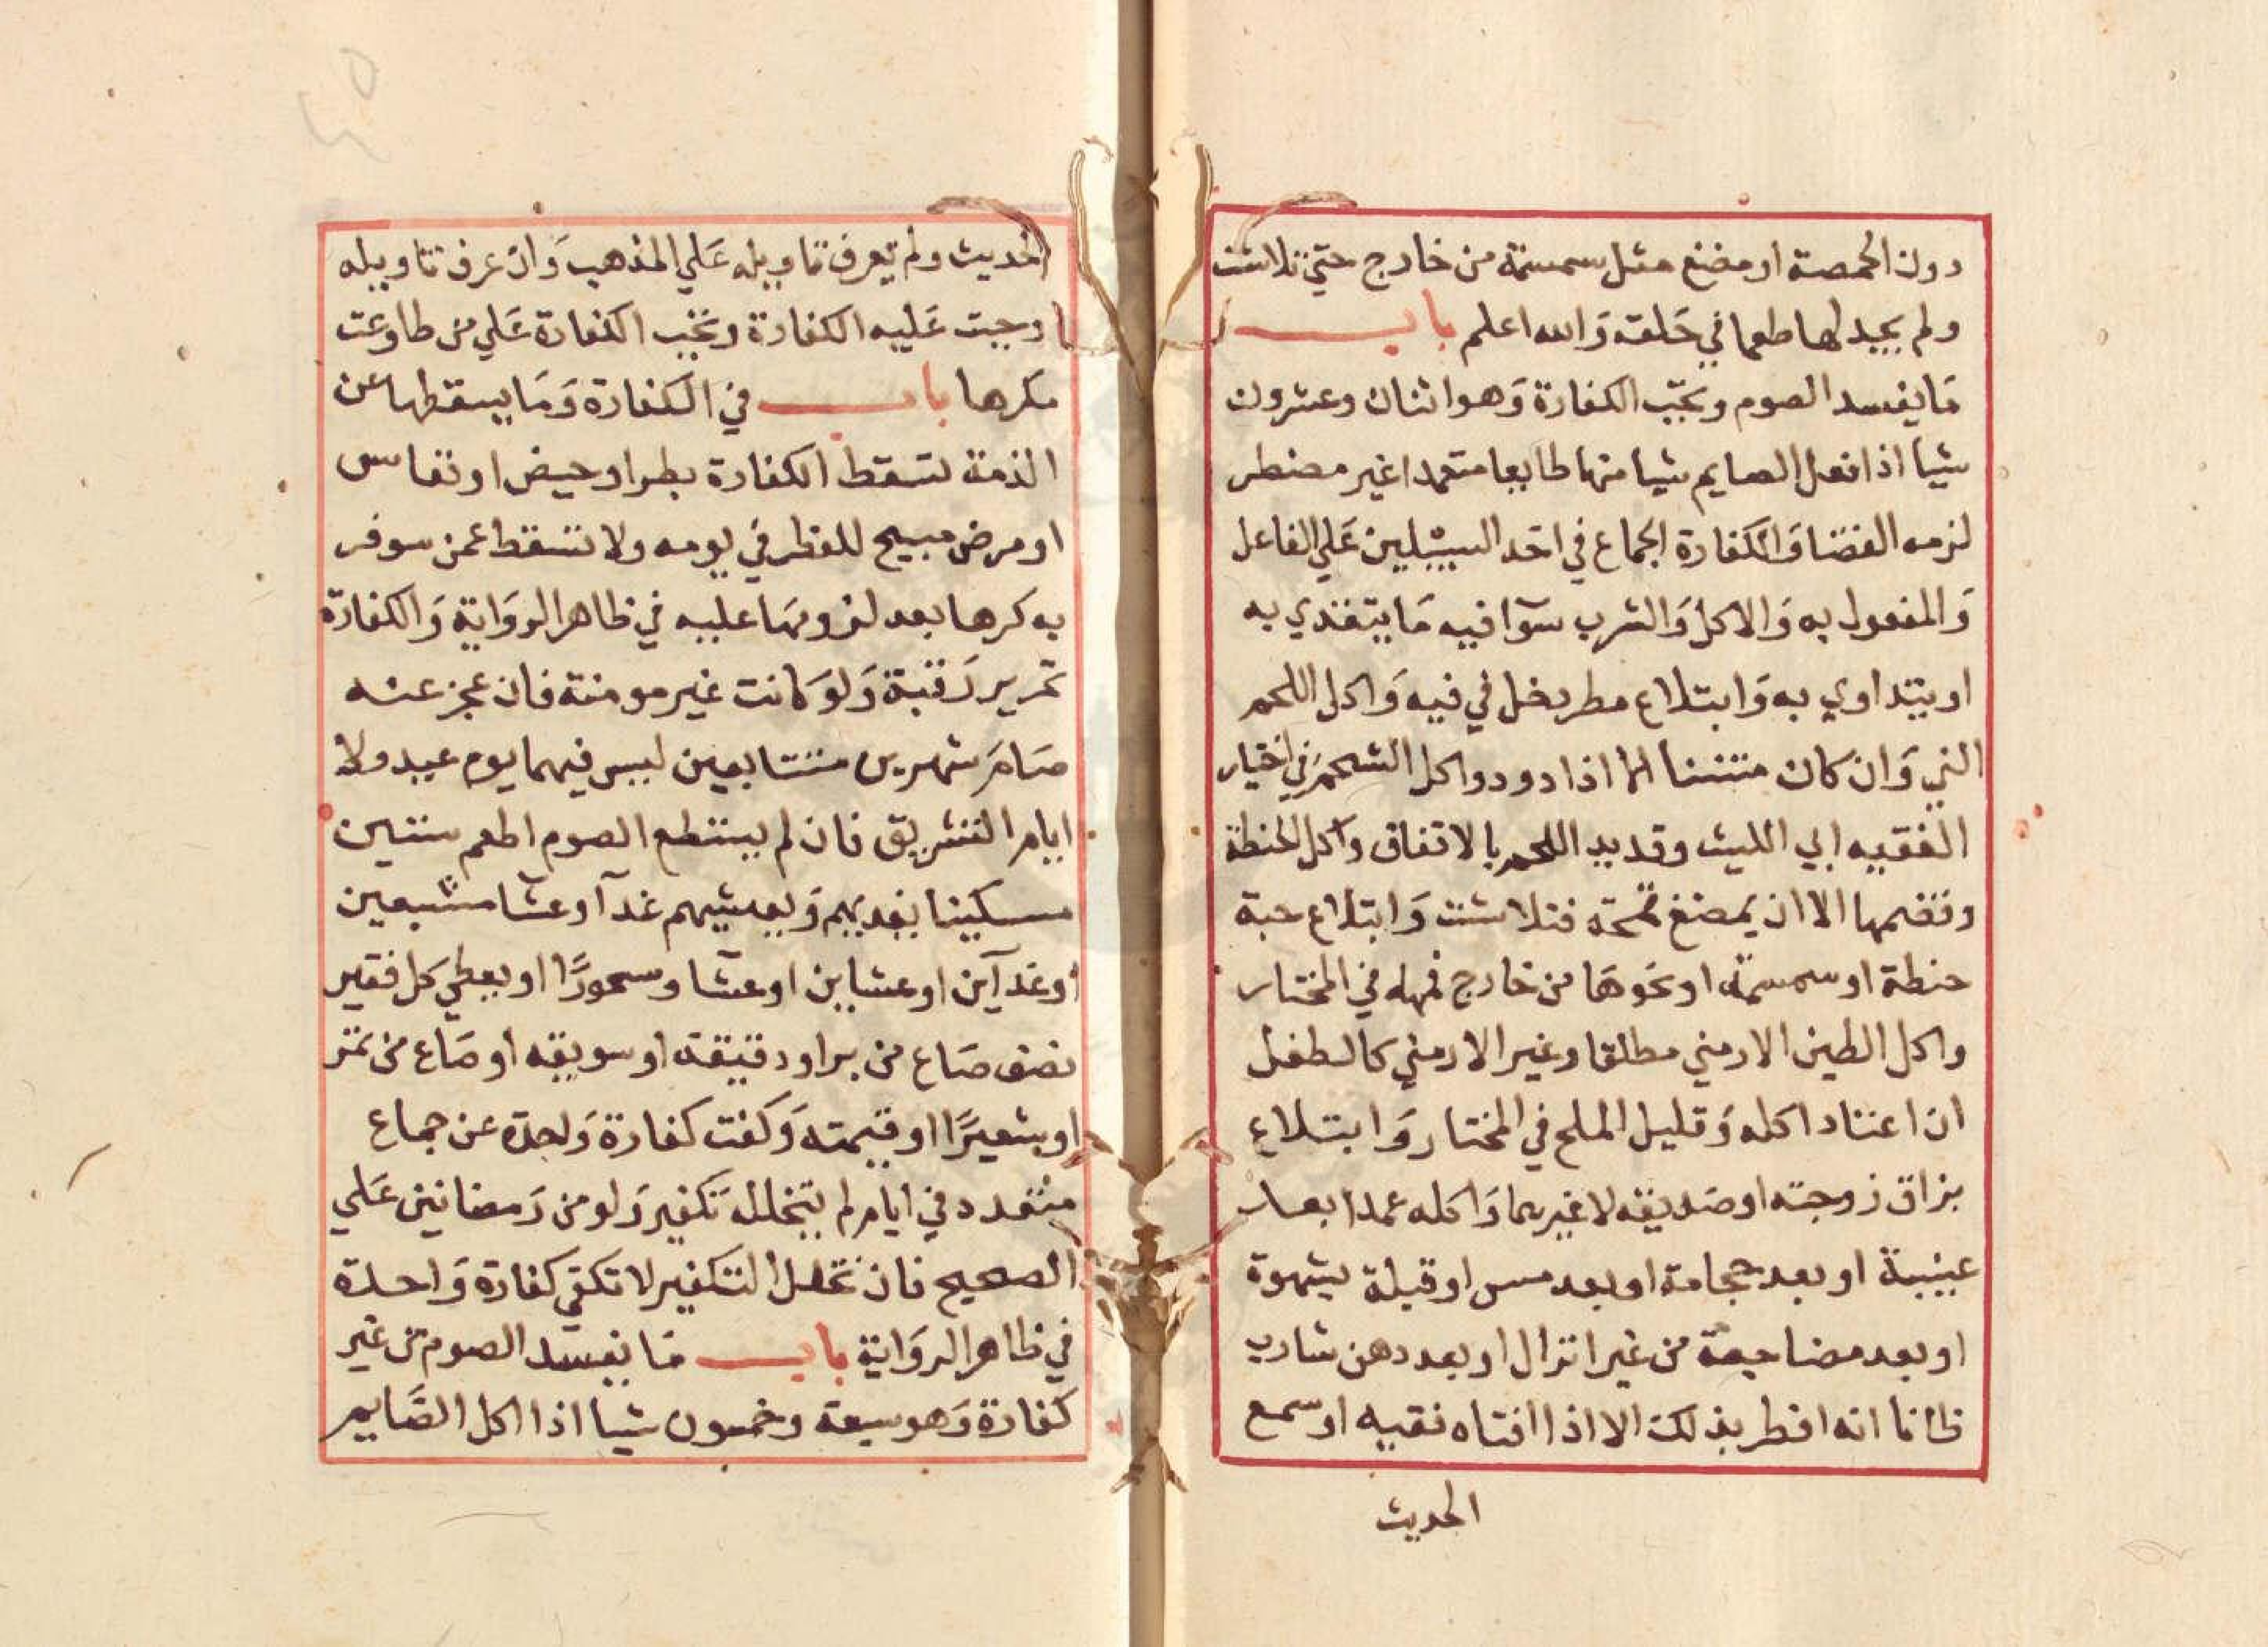 دون الحمصة او مضغ مثل سمسمة من خارج حتي تلاشت
ولم يجد لها طعما في حَلقه وَالله اعلم باب
مَا يفسد الصوم وتجب الكفارة وَهو اثنان وعشرون
شيا اذا فعل الصايم شيا منها طايعا متعمدا غير مضطر
لزمه القضا وَالكفارة الجماع في احَد السبيلين عَلي الفاعل
وَالمفعول به وَالاكل وَالشرب سَوآ فيه مَا يتغذي به
او يتداوي به وَابتلاع مطر دخل في فيه وَاكل اللحم
الني وَان كان منتنا الا اذا دود واكل الشحم في اختيار
الفقيه ابي الليث وقديد اللحم بالاتفاق واكل الحنطة
وقضمها الا ان يمضغ قمحَة فتلاشت وَابتلاع حبة
حنطة او سمسمة او نحَوهَا من خارج فمه في المختار
واكل الطين الارمني مطلقا وغير الارمني كالطفل
ان اعتاد اكله وَقليل الملح في المختار وَابتلاع
بزاق زوجته او صَديقه لا غيرهما وَاكله عمدا بعد
غيبة او بعد حجامة او بعد مس او قبلة بشهوة
او بعد مضاجعة من غير انزال او بعد دهن شارب
ظانا انه افطر بذلك الا اذا افتاه فقيه او سمع
الحديث
الحديث ولم يعرف تاويله عَلي المذهب وَان عرف تاويله
وجبت عَليه الكفارة وتجب الكفارة عَلي من طاوعت
مكرها باب في الكفارة وَمَا يسقطها عن
الذمة تسقط الكفارة بطرا وحيض او نفاس
او مرض مبيح للفطر في يومه ولا تسقط عمن سوفر
به كرها بعد لزومهَا عليه في ظاهر الروَاية وَالكفارة
تحرير رَقبة وَلوَ كانت غير مومنة فان عجز عنه
صَامَ شهرين متتابعين ليس فيهما يوم عيد ولا
ايام التشريق فان لم يستطع الصوم اطعم ستين
مسكينا يغديهم وَيعشيهم غدآ وعشا مشبعين
او غدآين او عشاين او عشا وسحورًا او يعطي كل فقير
نصف صَاع من بر او دقيقه او سويقه او صَاع من تمر
او شعيرًا او قيمته وَكفت كفارة وَاحدة عن جماع
متعدد في ايام لم يتخلله تكفير وَلو من رَمضانين عَلي
الصحيح فان تخلل التكفير لا تكفي كفارة وَاحدة
في ظاهر الروَاية باب مَا يفسد الصوم من غير
كفارة وَهو سبعة وخمسون شيا اذا اكل الصَّايم